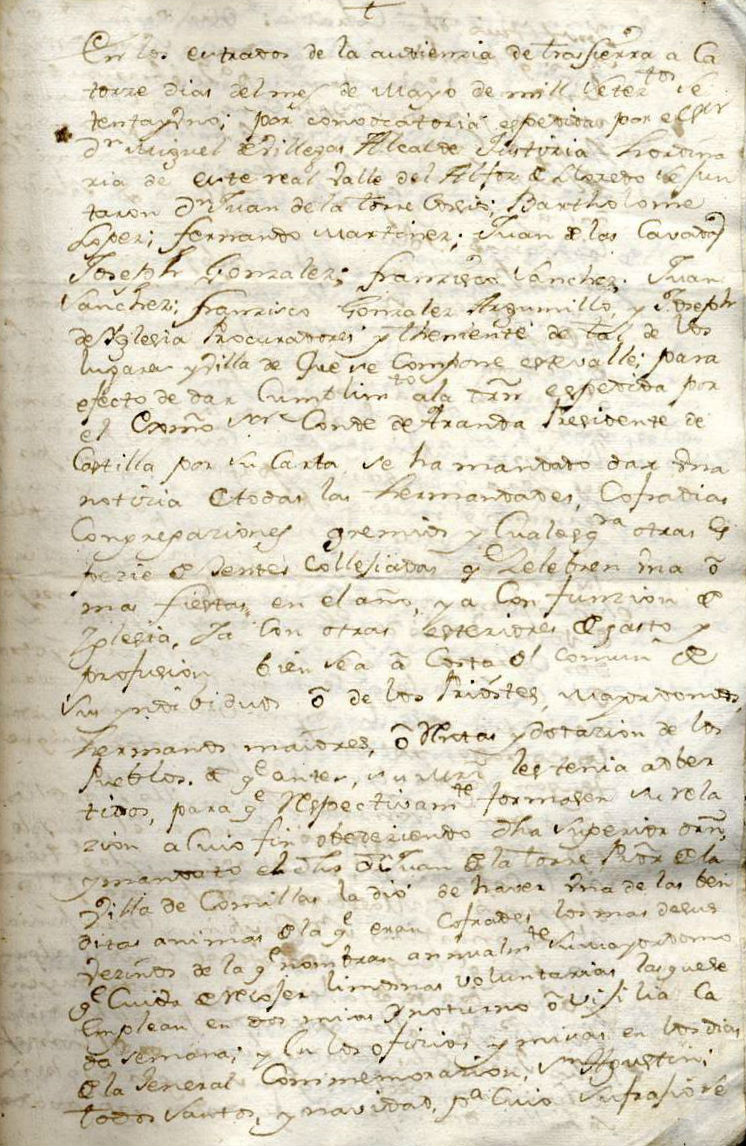 En los estrados de la audienzia de trassierra a Ca
torze dias del mes de Mayo de mill setez.tos se
tenta y uno; por convocatoria espedida por el Sr
Dn Miguel de Villegas Alcalde Justizia hordina
ria de este real Valle del Alfoz de Lloredo se jun
taron Dn Juan de la torre Cossio; Bartholome
Lopez; fernando Martinez; Juan de las Cavadas
Joseph Gonzalez; franzisco Sanchez; Juan
Sanchez; franzisco Gonzalez Argumillo, y Joseph
de Yglesia Procuradores y theniente de tal de los
lugares y villa de que se compone este valle; para
efecto de dar Cumplim.to a la orn espedida por
el Exmo Sor Conde de Aranda Presidente de
Castilla por su Carta se ha mandado dar una
notizia de todas las hermandades, Cofradias
Congregaziones gremios y Qualesq.ra otras es
pezie de Jentes Collejiadas q.e Zelebren una ó
mas fiestas en el año, ya con funzion de
Yglesia, Ya con otras esteriores de gasto y
profusion bien sea á Costa del comun de
sus yndibiduos ó de los Priostes, mayordomos,
hermanos maiores, ó Rentas y dotazion de los
Pueblos. de q.e antes, su mrd les tenia adber
tidos, para q.e Respectivam.te formasen su rela
zion a cuio fin obedeziendo dha superior orn,
y mandato el dho Dn Juan de la torre Rior de la
Villa de Comillas la dió de haver una de las ben
ditas animas de la q.e eran Cofrades los mas de sus
vezinos de la q.e nombran anualm.te su mayordomo
q.e Cuida de recojer limosnas voluntarias las que se
emplean en dos misas y noturno ó vijilia Ca
da semana; y en los ofizios y misas en los dias
de la Jeneral Commemorazion, Sn Agustin;
todos Santos, y navidad, p.a Cuio sufrajio se